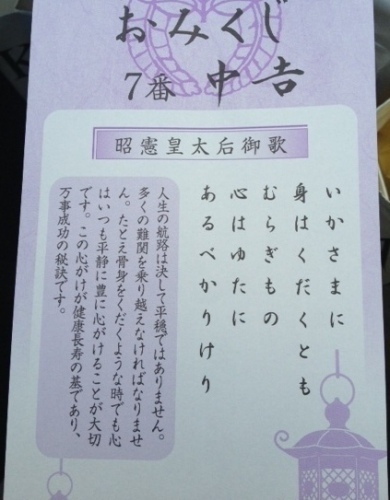 おみくじ
7番 中吉
昭憲皇太后御歌
いかさまに
身はくだくとも
むらぎもの
心はゆたに
あるべかりけり
人生の航路は決して平穏ではありません。
多くの難関を乗り越えなければなりませ
ん。たとえ骨身をくだくような時でも心
はいつも平静に豊に心がけることが大切
です。この心がけが健康長寿の基であり、
万事成功の秘訣です。